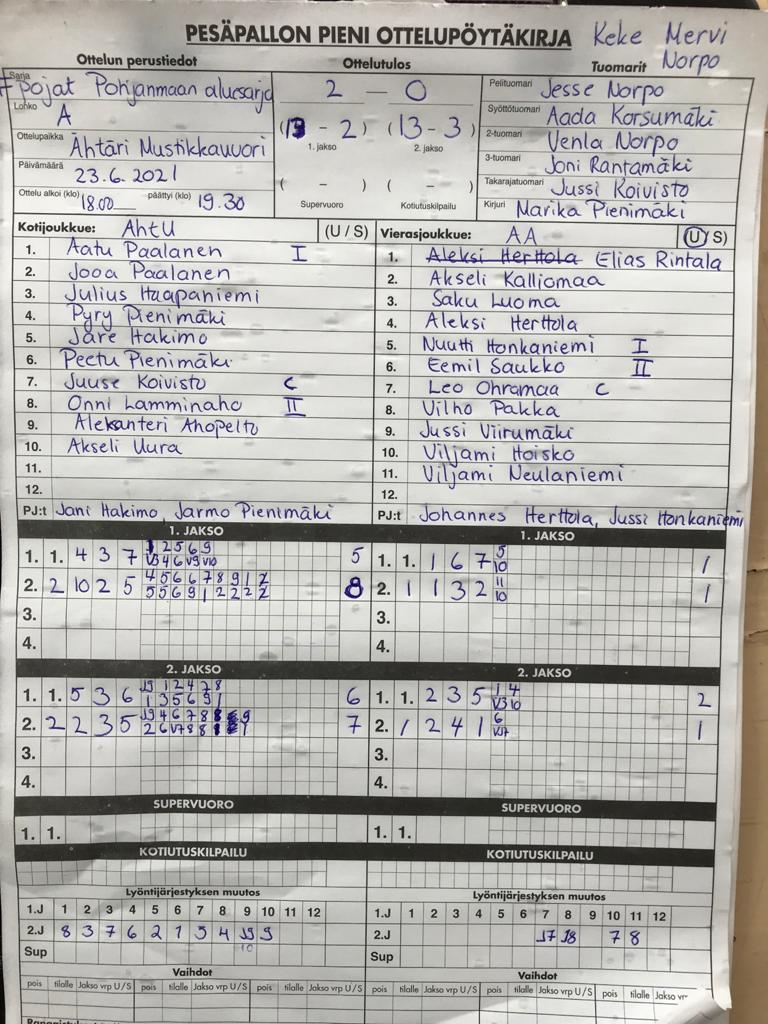 PESÄPALLON PIENI OTTELUPÖYTÄKIRJA Keke Mervi
Norpo
Ottelun perustiedot Ottelutulos Tuomarit
Sarja pojat Pohjanmaan aluesarja
Lohko A
Ottelupaikka Ähtäri Mustikkavuori
Päivämäärä 23.6.2021
Ottelu alkoi (klo) 18.00 päättyi (klo) 19.30
2 - 0
(13 - 2) (13 - 3)
1. jakso 2. jakso
( - ) ( - )
Supervuoro Kotiutuskilpailu
Pelituomari Jesse Norpo
Syöttötuomari Aada Korsumäki
2-tuomari Venla Norpo
3-tuomari Joni Rantamäki
Takarajatuomari Jussi Koivisto
Kirjuri Marika Pienimäki
Kotijoukkue: AhtU (U / S)
1. Aatu Paalanen I
2. Jooa Paalanen
3. Julius Haapaniemi
4. Pyry Pienimäki
5. Jare Hakimo
6. Peetu Pienimäki
7. Juuse Koivisto C
8. Onni Lamminaho II
9. Aleksanteri Ahopelto
10. Akseli Uura
11.
12.
PJ:t Jani Hakimo, Jarmo Pienimäki
Vierasjoukkue: AA (U / S)
1. Aleksi Herttola Elias Rintala
2. Akseli Kalliomaa
3. Saku Luoma
4. Aleksi Herttola
5. Nuutti Honkaniemi I
6. Eemil Saukko II
7. Leo Ohramaa C
8. Vilho Pakka
9. Jussi Viirumäki
10. Viljami Hoisko
11. Viljami Neulaniemi
12.
PJ:t Johannes Herttola, Jussi Honkaniemi
1. JAKSO
1. 1. 4 3 7 5
2. 2 10 2 5 4 5 6 6 7 8 9 1 2 8
5 5 6 9 1 2 2 2 2
3.
4.
1. JAKSO
1. 1. 1 6 7 5 1
10
2. 1 1 3 2 11 1
10
3.
4.
2. JAKSO
1. 1. 5 3 6 J9 1 2 4 7 8 6
1 3 5 6 9 1
2. 2 2 3 5 7
3.
4.
2. JAKSO
1. 1. 2 3 5 1 4 2
V3 10
2. 1 2 4 1 6 1
3.
4.
SUPERVUORO
1. 1.
SUPERVUORO
1. 1.
KOTIUTUSKILPAILU
KOTIUTUSKILPAILU
Lyöntijärjestyksen muutos
1.J 1 2 3 4 5 6 7 8 9 10 11 12
2.J 8 3 7 6 2 1 5 4 J9 9
Sup 10
Lyöntijärjestyksen muutos
1.J 1 2 3 4 5 6 7 8 9 10 11 12
2.J J7 J8 7 8
Sup
Vaihdot
pois tilalle Jakso vrp U/S pois tilalle Jakso vrp U/S pois tilalle Jakso vrp U/S
Vaihdot
pois tilalle Jakso vrp U/S pois tilalle Jakso vrp U/S pois tilalle Jakso